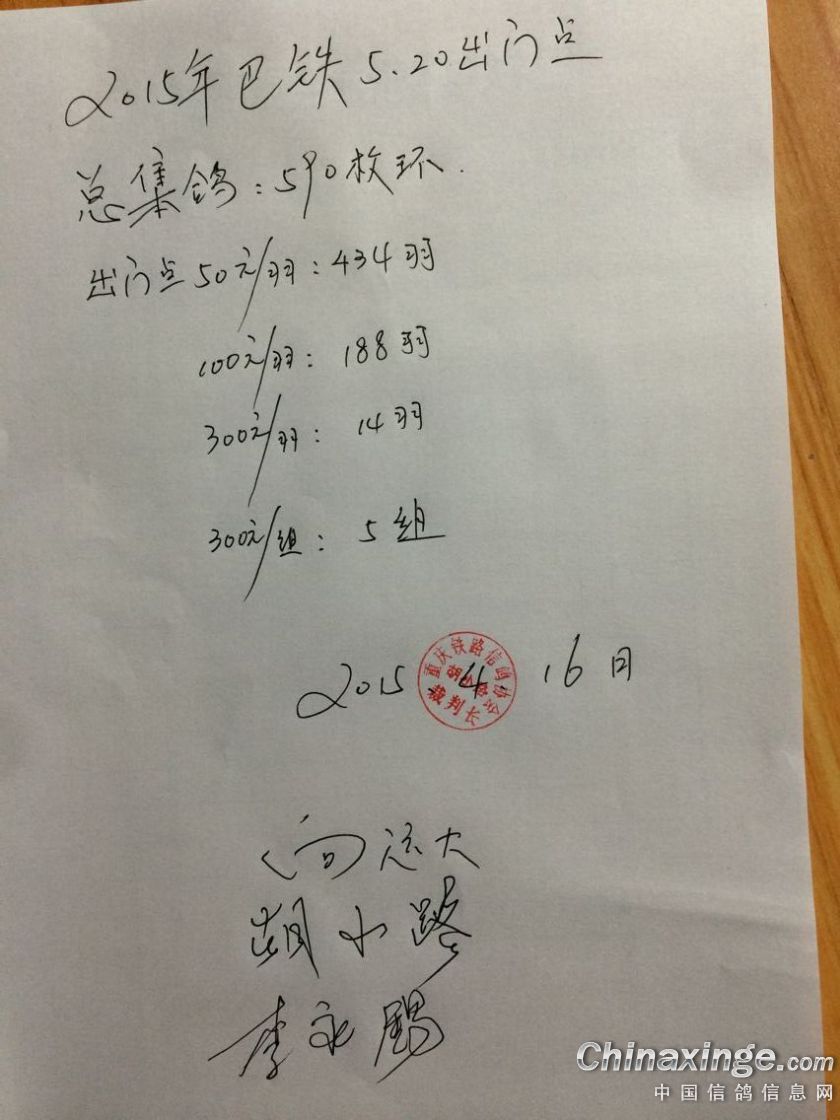 2015年巴铁5.20出门点
总集鸽:590枚环.
出门点50元/羽:434羽
100元/羽: 188羽
300元/羽: 14羽
300元/组: 5组
2015.4.16日
重庆铁路信鸽协会
裁判长
胡小路
李永赐
Chinaxinge.com
中国信鸽信息网